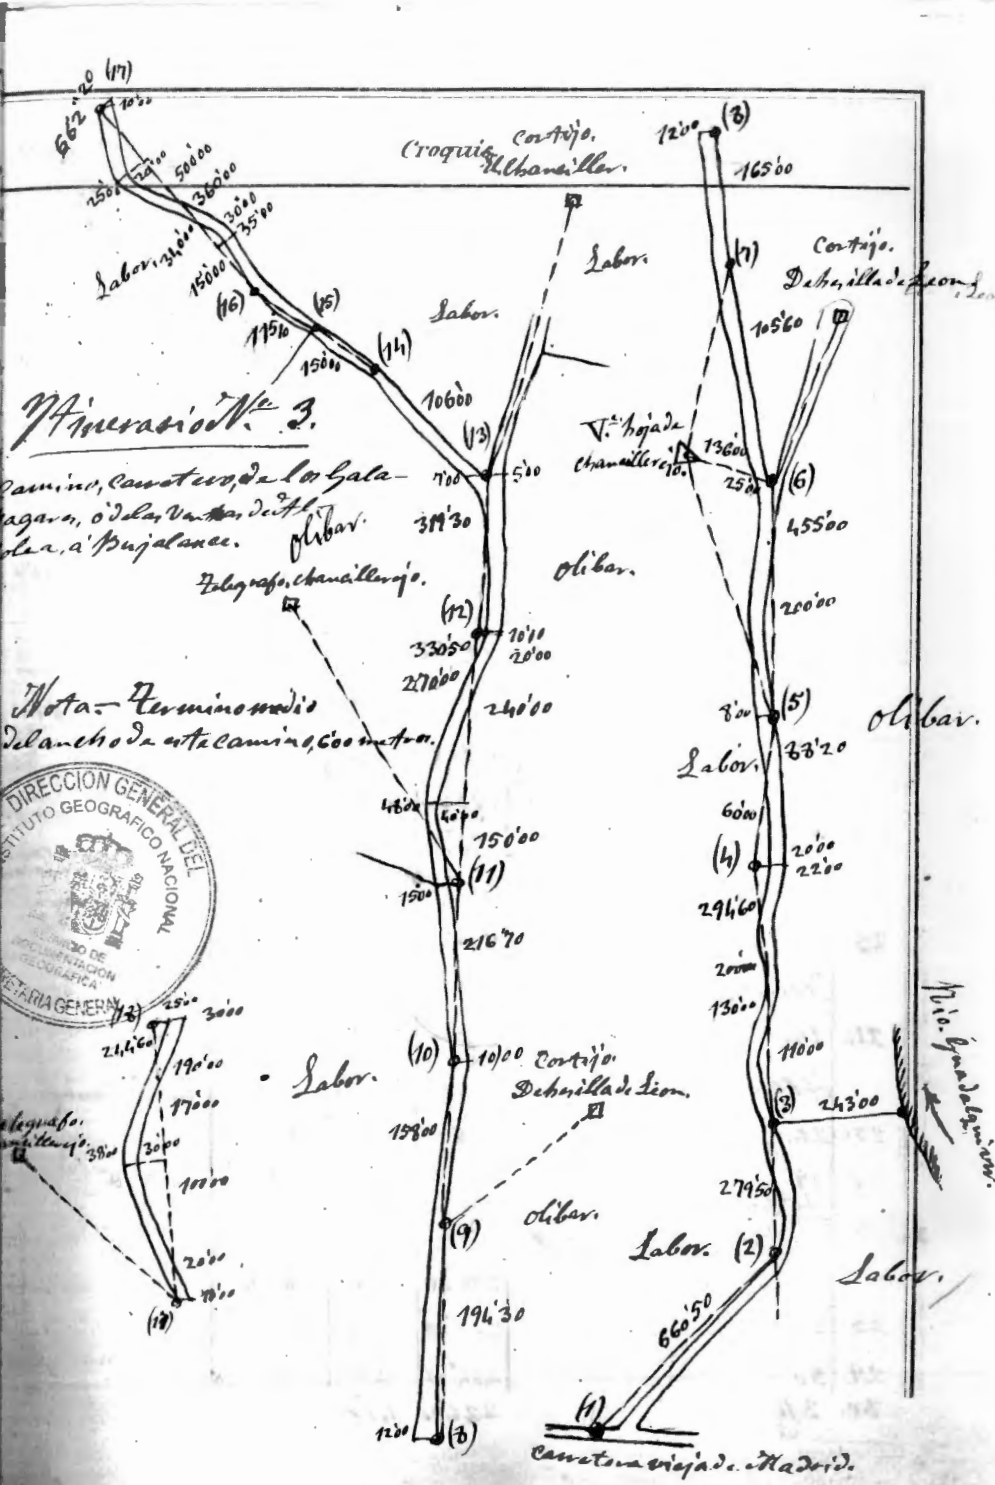 Croquis
Cortijo.
Chanciller.
662'20 (17)
10'00
20'00
25'00
50'00
360'00
30'00
35'00
Labor. 34'00
150'00
(16)
115'10
(15)
150'00
(14)
106'00
(13)
7'00
5'00
319'30
Labor.
Labor.
Itinerario Nº 3.
Camino, carretero, de los Gala-
pagares, ó de las Ventas de Al
colea, á Bujalance.
Olibar.
Telegrafo. chancillerejo.
Olibar.
(12)
330'50
10'10
20'00
270'00
240'00
Nota = Termino medio
del ancho de este camino, 6'00 metros.
48'00
40'00
150'00
(11)
15'00
216'70
(10)
10'00
Cortijo.
Dehesilla de Leon.
Labor.
158'00
(9)
Olibar.
194'30
12'00
(8)
DIRECCION GENERAL DEL
INSTITUTO GEOGRAFICO NACIONAL
SERVICIO DE
DOCUMENTACION
GEOGRAFICA
SECRETARIA GENERAL
(18)
25'00
30'00
214'60
190'00
170'00
Telegrafo.
chancillerejo.
38'00
30'00
100'00
20'00
(17)
12'00
(8)
165'00
(7)
Cortijo.
Dehesilla de Leon
105'60
Vª hoja de
chancillerejo.
136'00
25'00
(6)
455'00
200'00
8'00
(5)
Olibar.
88'20
Labor.
60'00
(4)
20'00
22'00
294'60
200'00
130'00
110'00
(3)
243'00
Rio. Guadalquivir.
279'50
Labor.
(2)
Labor.
660'50
(1)
Carretera vieja de Madrid.